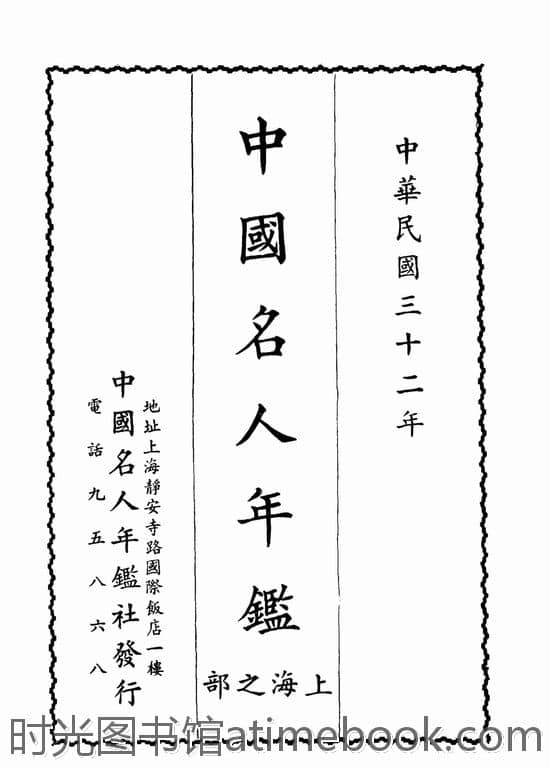 中華民國三十二年
中國名人年鑑
上海之部
地址上海靜安寺路國際飯店一樓
中國名人年鑑社發行
電話九五八六八
时光图书馆atimebook.com